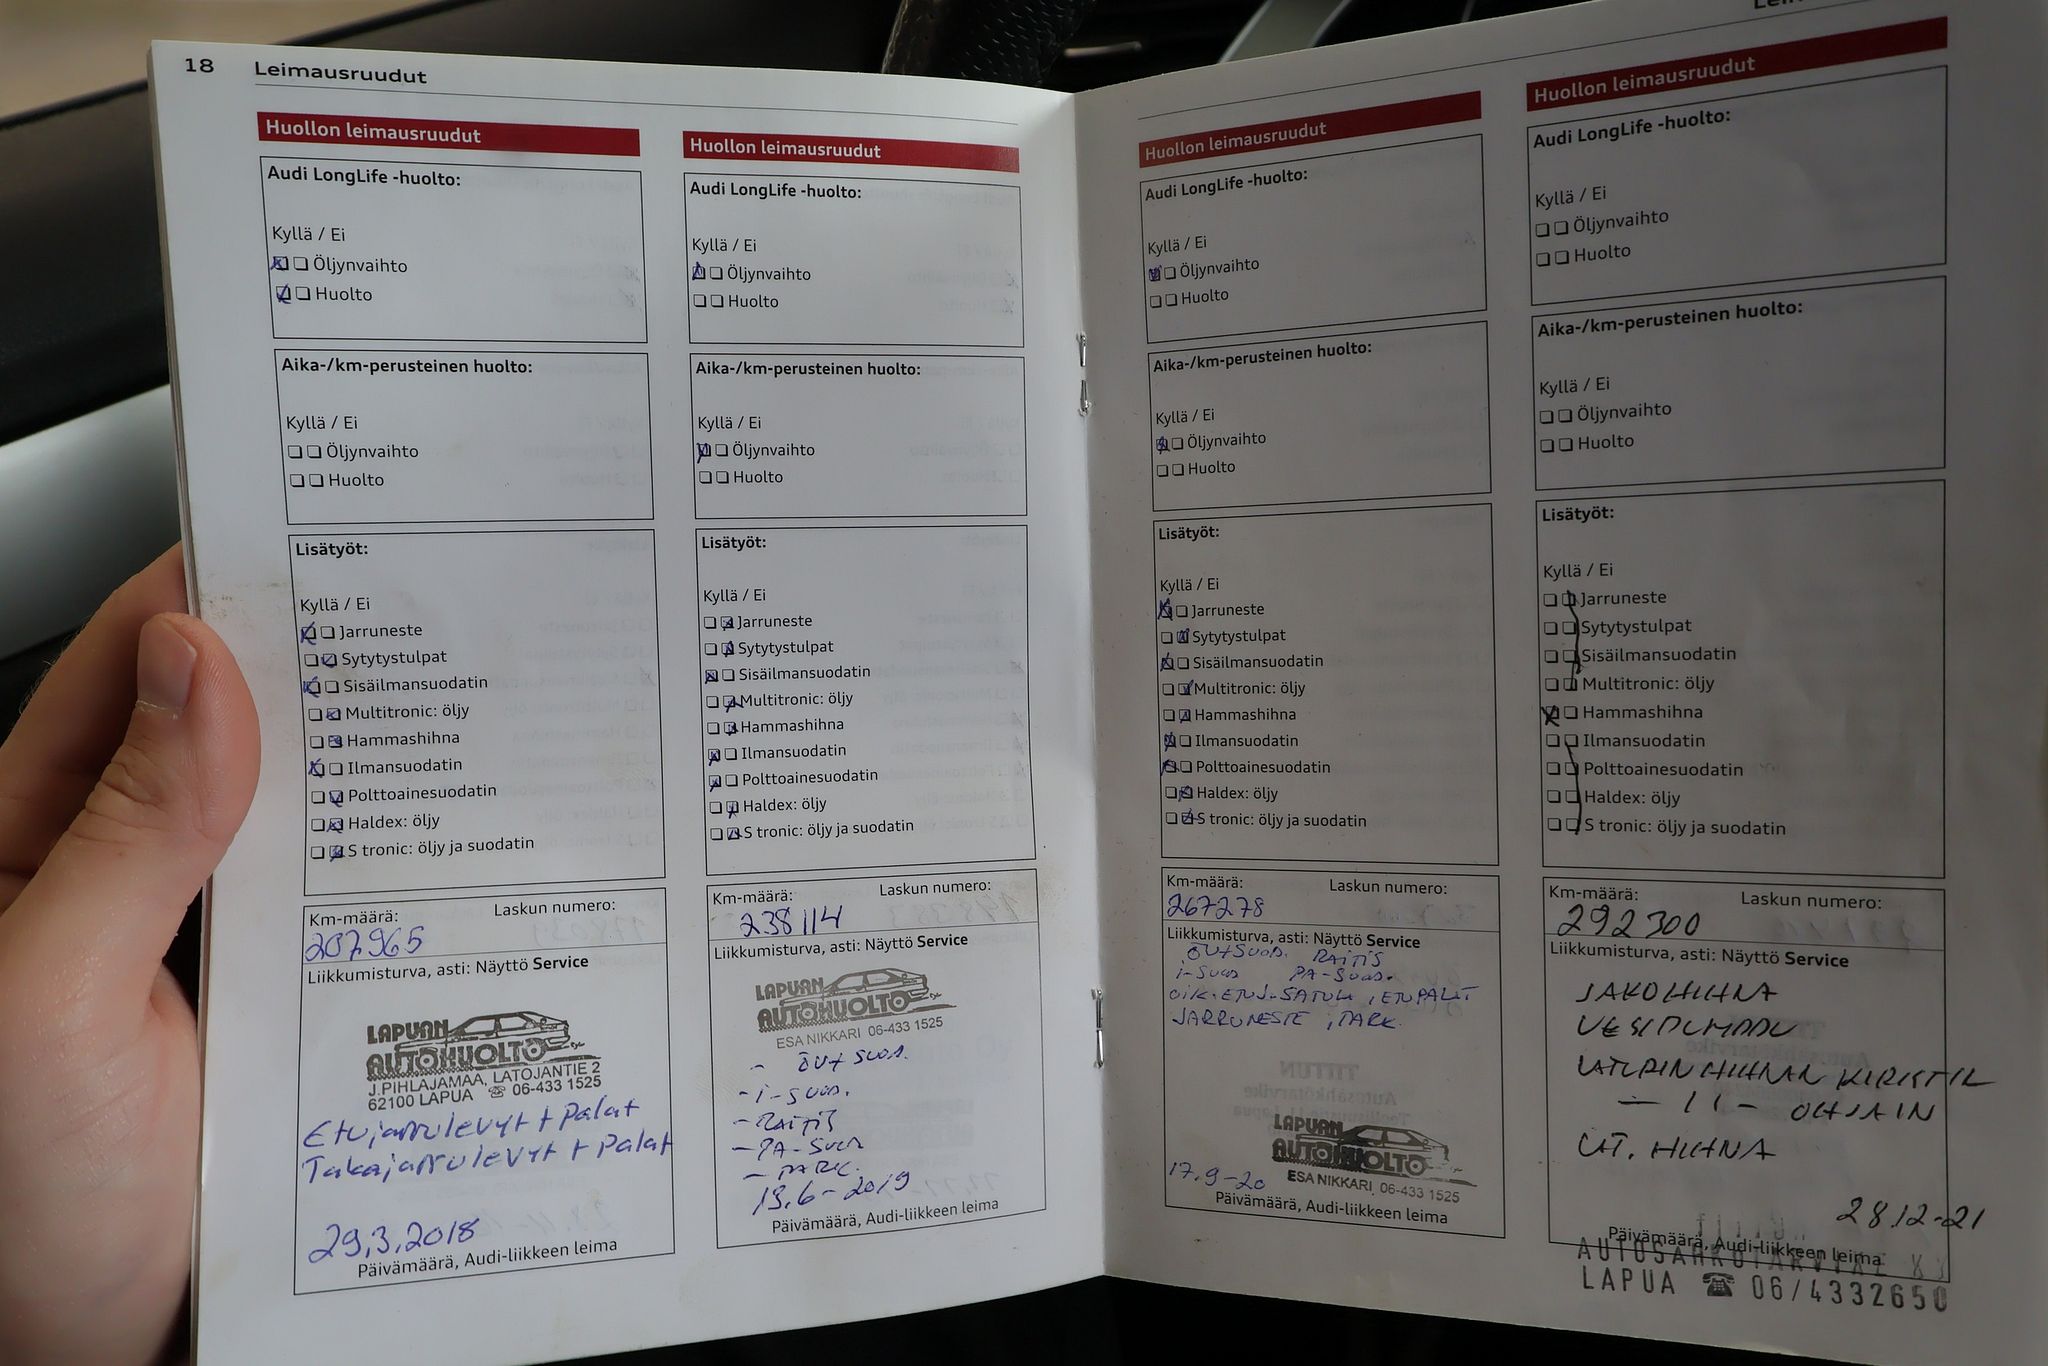 18 Leimausruudut
Huollon leimausruudut
Audi LongLife -huolto:
Kyllä / Ei
Öljynvaihto
Huolto
Aika-/km-perusteinen huolto:
Kyllä / Ei
Öljynvaihto
Huolto
Lisätyöt:
Kyllä / Ei
Jarruneste
Sytytystulpat
Sisäilmansuodatin
Multitronic: öljy
Hammashihna
Ilmansuodatin
Polttoainesuodatin
Haldex: öljy
S tronic: öljy ja suodatin
Km-määrä: Laskun numero:
207965
Liikkumisturva, asti: Näyttö Service
LAPUAN
AUTOHUOLTO
J.PIHLAJAMAA, LATOJANTIE 2
62100 LAPUA ☎ 06-433 1525
Etujarrulevyt + palat
Takajarrulevyt + palat
29.3.2018
Päivämäärä, Audi-liikkeen leima
Huollon leimausruudut
Audi LongLife -huolto:
Kyllä / Ei
Öljynvaihto
Huolto
Aika-/km-perusteinen huolto:
Kyllä / Ei
Öljynvaihto
Huolto
Lisätyöt:
Kyllä / Ei
Jarruneste
Sytytystulpat
Sisäilmansuodatin
Multitronic: öljy
Hammashihna
Ilmansuodatin
Polttoainesuodatin
Haldex: öljy
S tronic: öljy ja suodatin
Km-määrä: Laskun numero:
238114
Liikkumisturva, asti: Näyttö Service
LAPUAN
AUTOHUOLTO
ESA NIKKARI 06-433 1525
- ÖV+SUOD.
- i-SUOD.
- RAITIS
- PA-SUOD
- PARK.
13.6-2019
Päivämäärä, Audi-liikkeen leima
Huollon leimausruudut
Audi LongLife -huolto:
Kyllä / Ei
Öljynvaihto
Huolto
Aika-/km-perusteinen huolto:
Kyllä / Ei
Öljynvaihto
Huolto
Lisätyöt:
Kyllä / Ei
Jarruneste
Sytytystulpat
Sisäilmansuodatin
Multitronic: öljy
Hammashihna
Ilmansuodatin
Polttoainesuodatin
Haldex: öljy
S tronic: öljy ja suodatin
Km-määrä: Laskun numero:
267278
Liikkumisturva, asti: Näyttö Service
ÖV+SUOD. RAITIS
i-SUOD PA-SUOD.
OIK. ETU J-SATULA, ETUPALAT
JARRUNESTE, PARK.
LAPUAN
AUTOHUOLTO
17.9-20 ESA NIKKARI, 06-433 1525
Päivämäärä, Audi-liikkeen leima
Huollon leimausruudut
Audi LongLife -huolto:
Kyllä / Ei
Öljynvaihto
Huolto
Aika-/km-perusteinen huolto:
Kyllä / Ei
Öljynvaihto
Huolto
Lisätyöt:
Kyllä / Ei
Jarruneste
Sytytystulpat
Sisäilmansuodatin
Multitronic: öljy
Hammashihna
Ilmansuodatin
Polttoainesuodatin
Haldex: öljy
S tronic: öljy ja suodatin
Km-määrä: Laskun numero:
292300
Liikkumisturva, asti: Näyttö Service
JAKOHIHNA
VESIPUMPPU
LATURIN HIHNAN KIRISTIN
— 11 — OHJAIN
LAT. HIHNA
28.12-21
Päivämäärä, Audi-liikkeen leima
AUTOSÄHKÖTARVIKE KY
LAPUA ☎ 06/4332650